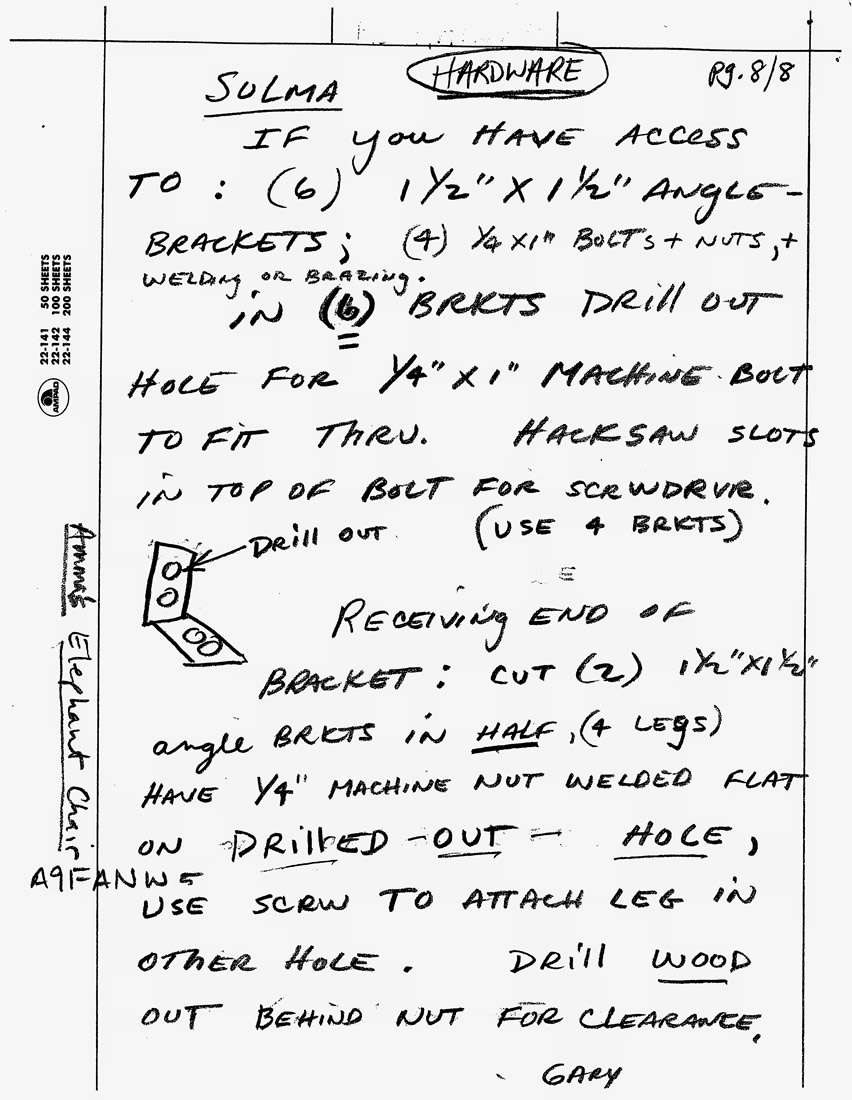 HARDWARE
Pg. 8/8
SULMA
IF you HAVE ACCESS
TO : (6) 1 1/2" X 1 1/2" ANGLE-
BRACKETS; (4) 1/4 X1" BOLTS + NUTS, +
WELDING OR BRAZING.
IN (6) BRKTS DRill OUT
HOLE FOR 1/4" X 1" MACHINE BOLT
TO FIT THRU. HACKSAW SLOTS
IN TOP OF BOLT FOR SCRWDRVR.
(USE 4 BRKTS)
DRill OUT
RECEIVING END OF
BRACKET : CUT (2) 1 1/2"X1 1/2"
angle BRKTS IN HALF, (4 LEGS)
HAVE 1/4" MACHINE NUT WELDED FLAT
ON DRILLED-OUT - HOLE,
USE SCRW TO ATTACH LEG IN
OTHER HOLE. DRill WOOD
OUT BEHIND NUT FOR CLEARANCE.
GARY
22-141 50 SHEETS
22-142 100 SHEETS
22-144 200 SHEETS
AMPAD
Amma's Elephant Chair
A9FANW5